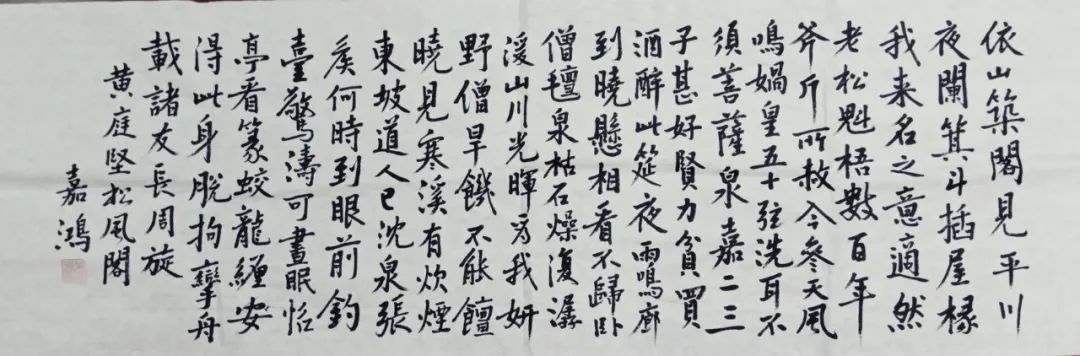 依山築閣見平川
夜闌箕斗插屋椽
我来名之意適然
老松魁梧數百年
斧斤所赦今參天風
鳴媧皇五十弦洗耳不
須菩薩泉嘉二三
子甚好賢力貧買
酒醉此筵夜雨鳴廊
到曉懸相看不歸卧
僧氈泉枯石燥復潺
湲山川光暉為我妍
野僧旱饑不能饘
曉見寒溪有炊煙
東坡道人已沈泉張
矦何時到眼前釣
臺驚濤可晝眠怡
亭看篆蛟龍纏安
得此身脫拘攣舟
載諸友長周旋
黄庭堅松風閣
嘉鴻